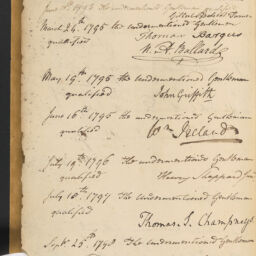 June 1795 the undermentioned Gentleman qualified
March 24th 1795 the undermentioned Gentlemen
qualified
Thomas Burgess
W. A. Ballard
May 19th 1795 the undermentioned Gentleman
qualified
John Griffith
June 16th 1795 the undermentioned Gentleman
qualified
Wm Ireland
July 19th 1796 the undermentioned Gentleman
qualified
Henry Sheppard Jun
July 18th 1797 the Undermentioned Gentleman
qualified
Thomas I. Champneys
Sept 25th 1798 the Undermentioned Gentleman